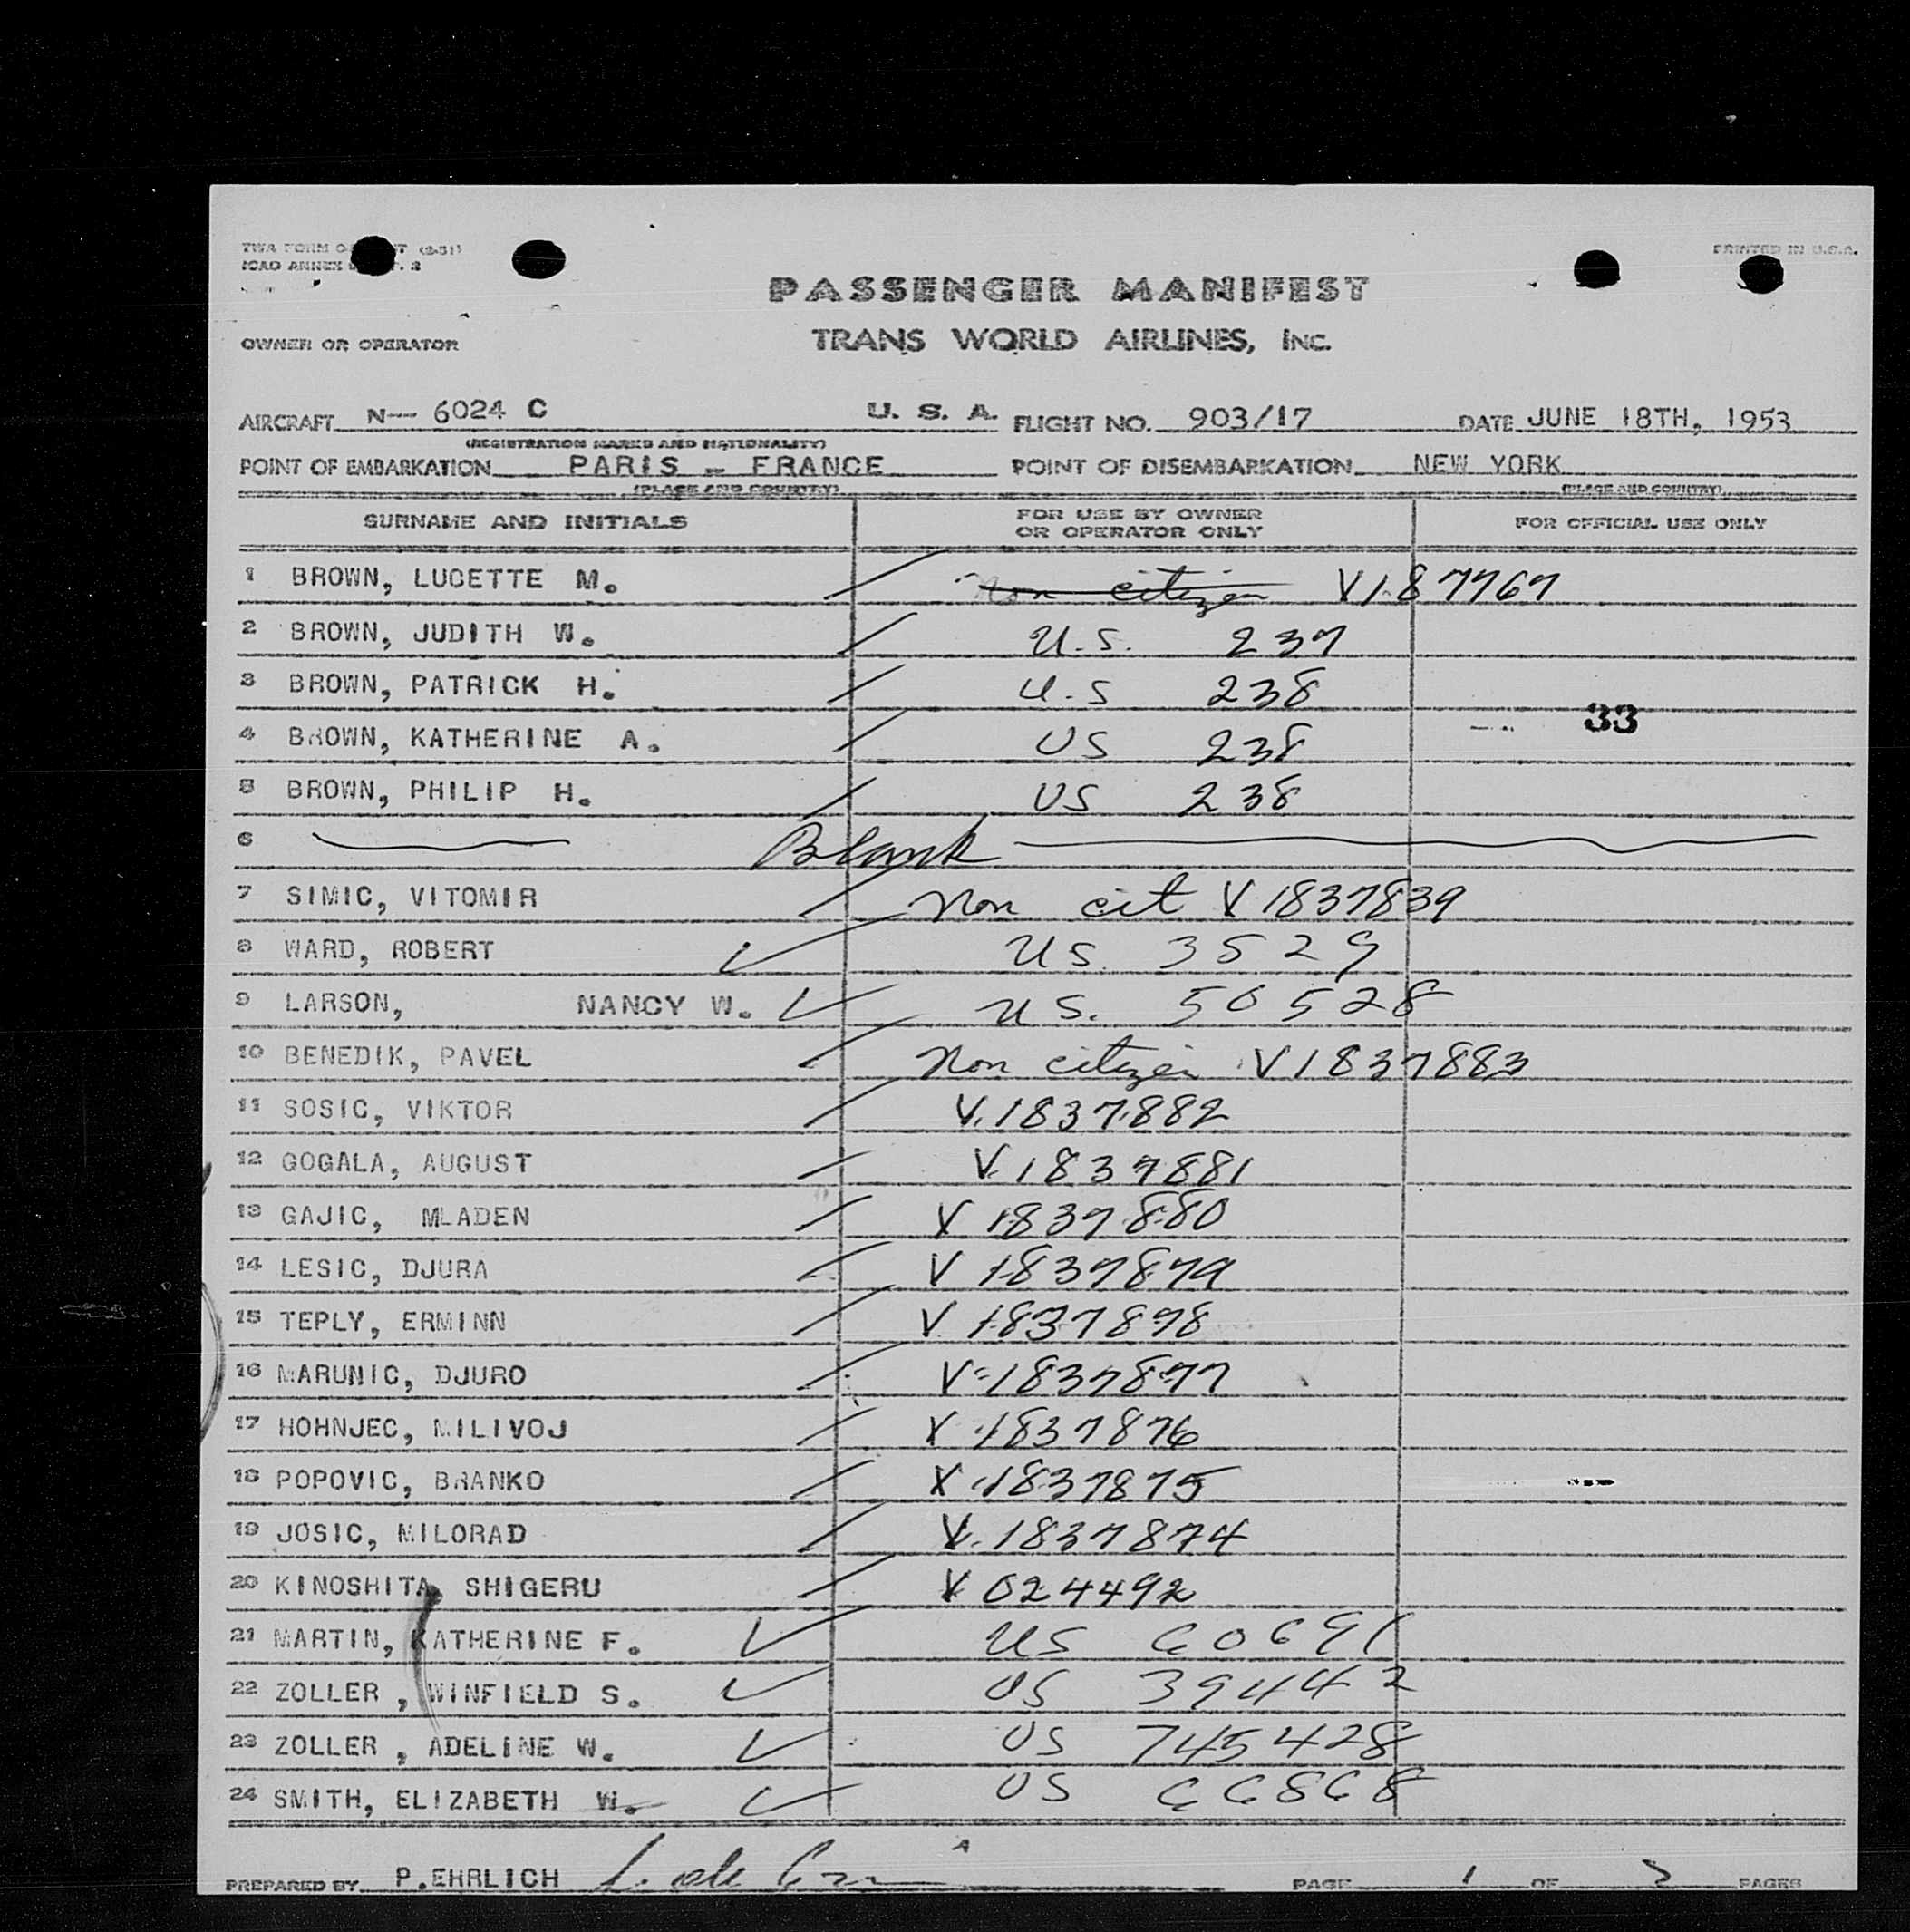 TWA FORM (2-51)
PRINTED IN U.S.A.
ICAO ANNEX 2
PASSENGER MANIFEST
OWNER OR OPERATOR TRANS WORLD AIRLINES, INC.
AIRCRAFT N-- 6024 C U. S. A. FLIGHT NO. 903/17 DATE JUNE 18TH, 1953
(REGISTRATION MARKS AND NATIONALITY)
POINT OF EMBARKATION PARIS - FRANCE POINT OF DISEMBARKATION NEW YORK
(PLACE AND COUNTRY) (PLACE AND COUNTRY)
SURNAME AND INITIALS FOR USE BY OWNER OR OPERATOR ONLY FOR OFFICIAL USE ONLY
1 BROWN, LUCETTE M. Non citizen V1.87767
2 BROWN, JUDITH W. U.S. 237
3 BROWN, PATRICK H. U.S 238
33
4 BROWN, KATHERINE A. US 238
5 BROWN, PHILIP H. US 238
6 Blank
7 SIMIC, VITOMIR Non cit V 1837839
8 WARD, ROBERT US. 3529
9 LARSON, NANCY W. US. 50528
10 BENEDIK, PAVEL Non citizen V1837883
11 SOSIC, VIKTOR V.1837882
12 GOGALA, AUGUST V.1837881
13 GAJIC, MLADEN V 1837880
14 LESIC, DJURA V 1837879
15 TEPLY, ERMINN V 1837878
16 MARUNIC, DJURO V-1837877
17 HOHNJEC, MILIVOJ V 1837876
18 POPOVIC, BRANKO V 1837875
19 JOSIC, MILORAD V.1837874
20 KINOSHITA, SHIGERU V 024492
21 MARTIN, KATHERINE F. US 60691
22 ZOLLER , WINFIELD S. US 39442
23 ZOLLER , ADELINE W. US 745428
24 SMITH, ELIZABETH W. US 66868
PREPARED BY P.EHRLICH PAGE 1 OF 2 PAGES